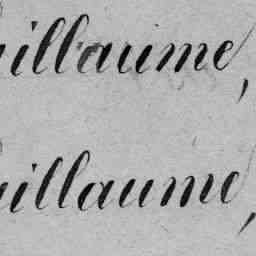 uillaume,
uillaume,